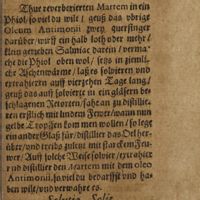 Thue reverberierten Martem in ein
Phiol/ so viel du wilt / geuß das obrige
Oleum Antimonii zwey querfinger
darüber/ wirff ein halb loth oder mehr/
klein gerieben Salmiac darein / verma-
che die Phiol oben wol / setz in ziemli-
che Aschenwärme / laß es solvieren und
extrahieren auff vierzehen Tage lang/
geuß das auff solvierte in ein gläsern be-
schlagenen Retorten / fahe an zu distillie-
ren erstlich mit lindem Fewer / wann nun
gelbe Tropffen kommen wollen / so lege
ein ander Glaß für / distillier das Oel her-
über / und treibs zuletzt mit starckem Feu-
wer / Auff solche Weise solvier / extrahier
und distillier den Martem mit dem oleo
Antimonii, so viel du bedarffst und ha-
ben wilt / und verwahre es.
Solutio Solis